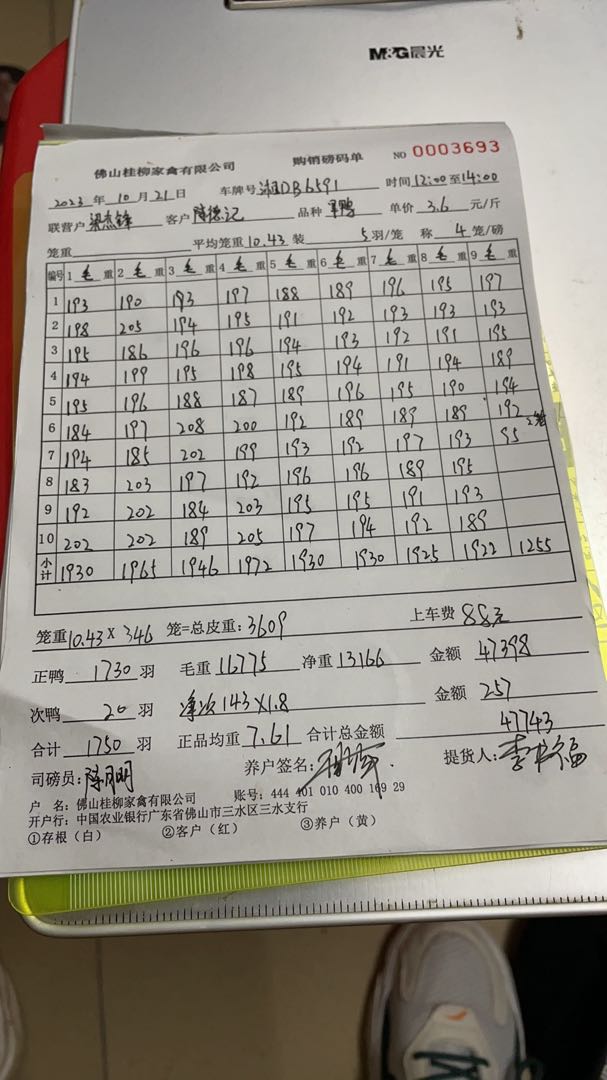 M&G晨光
佛山桂柳家禽有限公司 购销磅码单 NO 0003693
2023年10月21日 车牌号 湘DB6591 时间12:00至14:00
联营户 梁杰锋 客户 陈德记 品种 单价 3.6 元/斤
笼重 平均笼重 10.43 装 5 羽/笼 称 4 笼/磅
编号 1 毛重 2 毛重 3 毛重 4 毛重 5 毛重 6 毛重 7 毛重 8 毛重 9 毛重
1 193 190 193 197 188 189 196 195 197
2 198 205 194 195 191 192 193 193 193
3 195 186 196 196 194 193 192 191 195
4 194 199 195 198 195 194 191 194 189
5 195 196 188 187 189 196 195 190 194
6 184 197 208 200 192 189 189 189 192
7 194 185 202 199 193 192 197 193 95 2笼
8 183 203 197 192 196 196 189 195
9 192 202 184 203 195 195 191 193
10 202 202 189 205 197 194 192 189
小计 1930 1965 1946 1972 1930 1930 1925 1922 1255
笼重 10.43 × 346 笼=总皮重: 3609 上车费 88元
正鸭 1730 羽 毛重 16775 净重 13166 金额 47398
次鸭 20 羽 净次 143×1.8 金额 257
合计 1750 羽 正品均重 7.61 合计总金额 47743
司磅员: 陈月明 养户签名: 提货人:
户 名: 佛山桂柳家禽有限公司 账号: 444 401 010 400 169 29
开户行: 中国农业银行广东省佛山市三水区三水支行
①存根（白） ②客户（红） ③养户（黄）